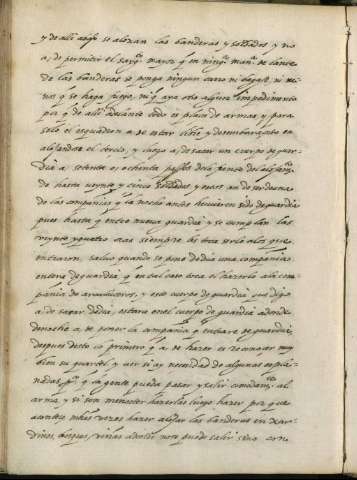 y de alli abajo se alojan las banderas y soldados, y no
a, de permitir el sarg.to mayor q en ning.a man.a delante
de las banderas se ponga ningun carro ni bagaje ni me
nos q se haga fuego, ni q aya otro algun impedimento
por q de alli adelante todo es plaza de armas y para
solo el esquadron a de estar libre y desembarazada en
alojandose el tercio, y luego a, de sacar un cuerpo de guar
dia a, setenta o, ochenta passos de la frente del
de hasta veynte y cinco soldados y estos an de ser de una
de las compañias q la noche antes hubieren sido de guardia
pues hasta q entre nueva guardia y se cumplan las
veynte y quatro oras siempre les toca serlo a los que
entraron, salvo quando se pone de dia una compañia
entera de guardia q en tal caso toca el hazerlo a la com
pañia de arcabuzeros, y este cuerpo de guardia que digo
a, de sacar de dia, estara en el cuerpo de guardia adonde
de noche a, de poner la compañia q entrare de guardia,
despues desto lo primero q a de hazer es reconozer muy
bien su quartel y ver si ay necesidad de algunas esplā
nadas p.a q la gente pueda pasar y salir comodam.te al
arma, y si son menester hazerlas luego hazer por que
acontese m.chas vezes hazer alojar las banderas en xar
dines, bosques, viñas adonde no se puede salir sino con